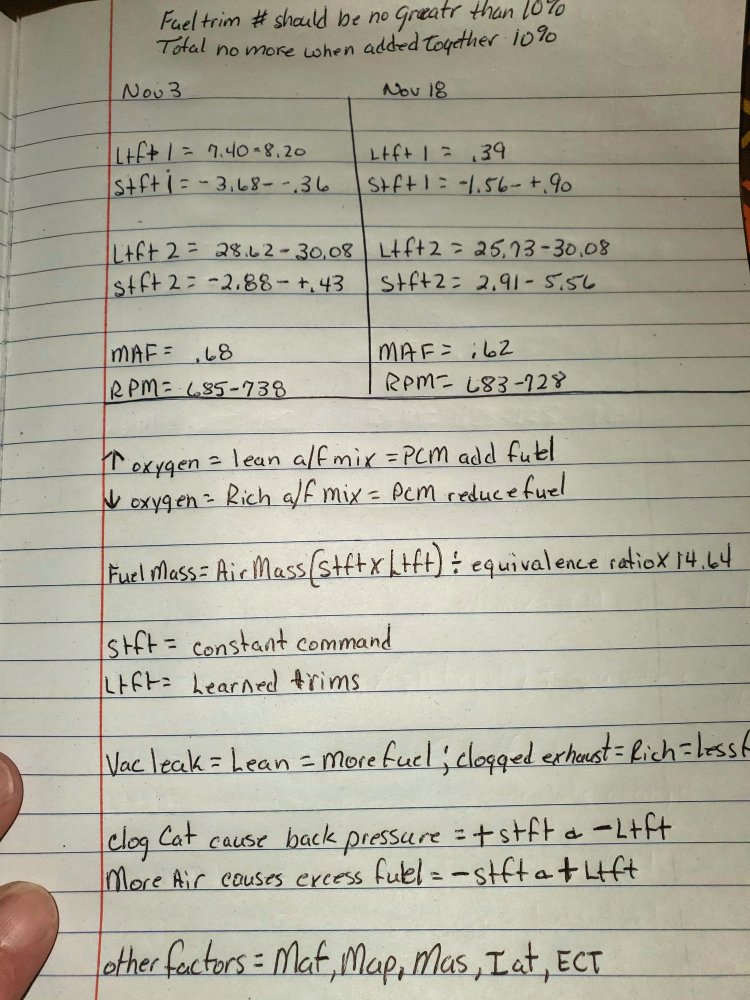 Fuel trim # should be no Greatr than 10%
Total no more when added together 10%
Nov 3 Nov 18
Ltft 1 = 7.40-8.20 Ltft 1 = .39
Stft 1 = -3.68- -.36 Stft 1 = -1.56- +.90
Ltft 2 = 28.62-30.08 Ltft 2 = 25.73-30.08
Stft 2 = -2.88- +.43 Stft 2 = 2.91-5.56
MAF = .68 MAF = .62
RPM = 685-738 RPM = 683-728
↑ oxygen = lean a/f mix = PCM add fuel
↓ oxygen = Rich a/f mix = PCM reduce fuel
Fuel Mass = Air Mass (Stft x Ltft) ÷ equivalence ratio x 14.64
Stft = constant command
Ltft = Learned trims
Vac leak = Lean = more fuel ; clogged exhaust = Rich = Less f
clog Cat cause back pressure = + stft a - Ltft
More Air causes excess fuel = - stft a + Ltft
other factors = Maf, Map, Mas, Iat, ECT